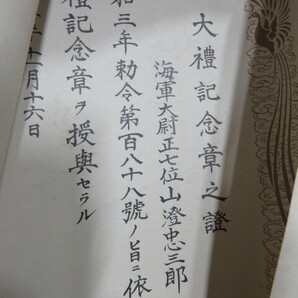 大禮記念章之證
海軍大尉正七位山澄忠三郎
和三年勅令第百八十八號ノ旨ニ依
禮記念章ヲ授與セラル
十一月十六日